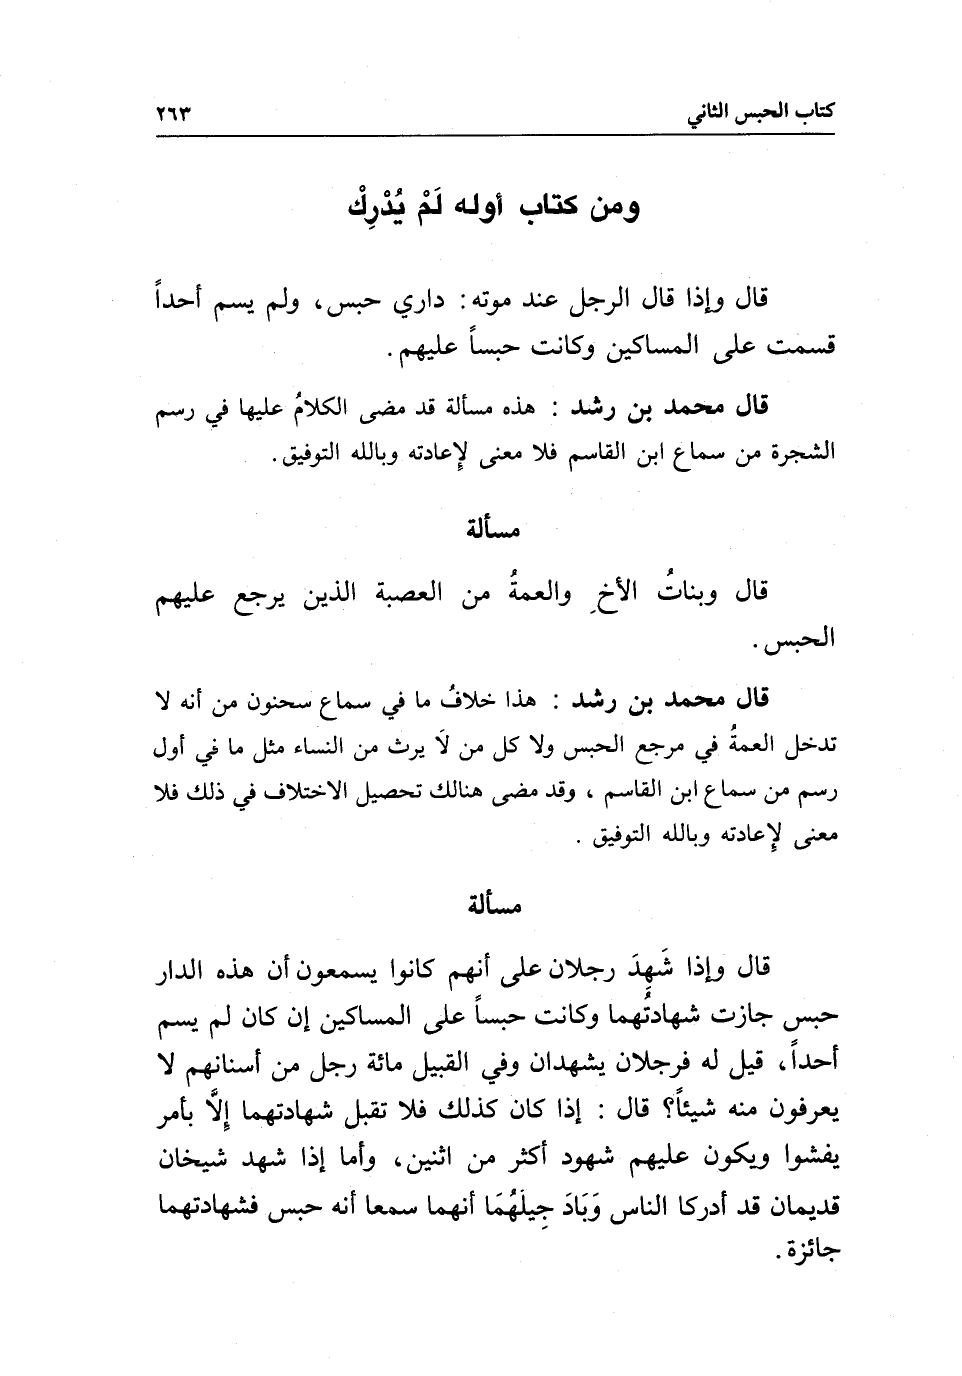 كتاب الحبس الثاني ٢٦٣
ومن كتاب أوله لَمْ يُدْرِكْ
قال وإذا قال الرجل عند موته: داري حبس، ولم يسم أحداً
قسمت على المساكين وكانت حبساً عليهم.
قال محمد بن رشد : هذه مسألة قد مضى الكلامُ عليها في رسم
الشجرة من سماع ابن القاسم فلا معنى لإعادته وبالله التوفيق.
مسألة
قال وبناتُ الأخِ والعمةُ من العصبة الذين يرجع عليهم
الحبس.
قال محمد بن رشد : هذا خلافُ ما في سماع سحنون من أنه لا
تدخل العمةُ في مرجع الحبس ولا كل من لَا يرث من النساء مثل ما في أول
رسم من سماع ابن القاسم ، وقد مضى هنالك تحصيل الاختلاف في ذلك فلا
معنى لإعادته وبالله التوفيق .
مسألة
قال وإذا شَهِدَ رجلان على أنهم كانوا يسمعون أن هذه الدار
حبس جازت شهادتُهما وكانت حبساً على المساكين إن كان لم يسم
أحداً، قيل له فرجلان يشهدان وفي القبيل مائة رجل من أسنانهم لا
يعرفون منه شيئاً؟ قال : إذا كان كذلك فلا تقبل شهادتهما إلَّا بأمر
يفشوا ويكون عليهم شهود أكثر من اثنين، وأما إذا شهد شيخان
قديمان قد أدركا الناس وَبَادَ جِيلَهُمَا أنهما سمعا أنه حبس فشهادتهما
جائزة .